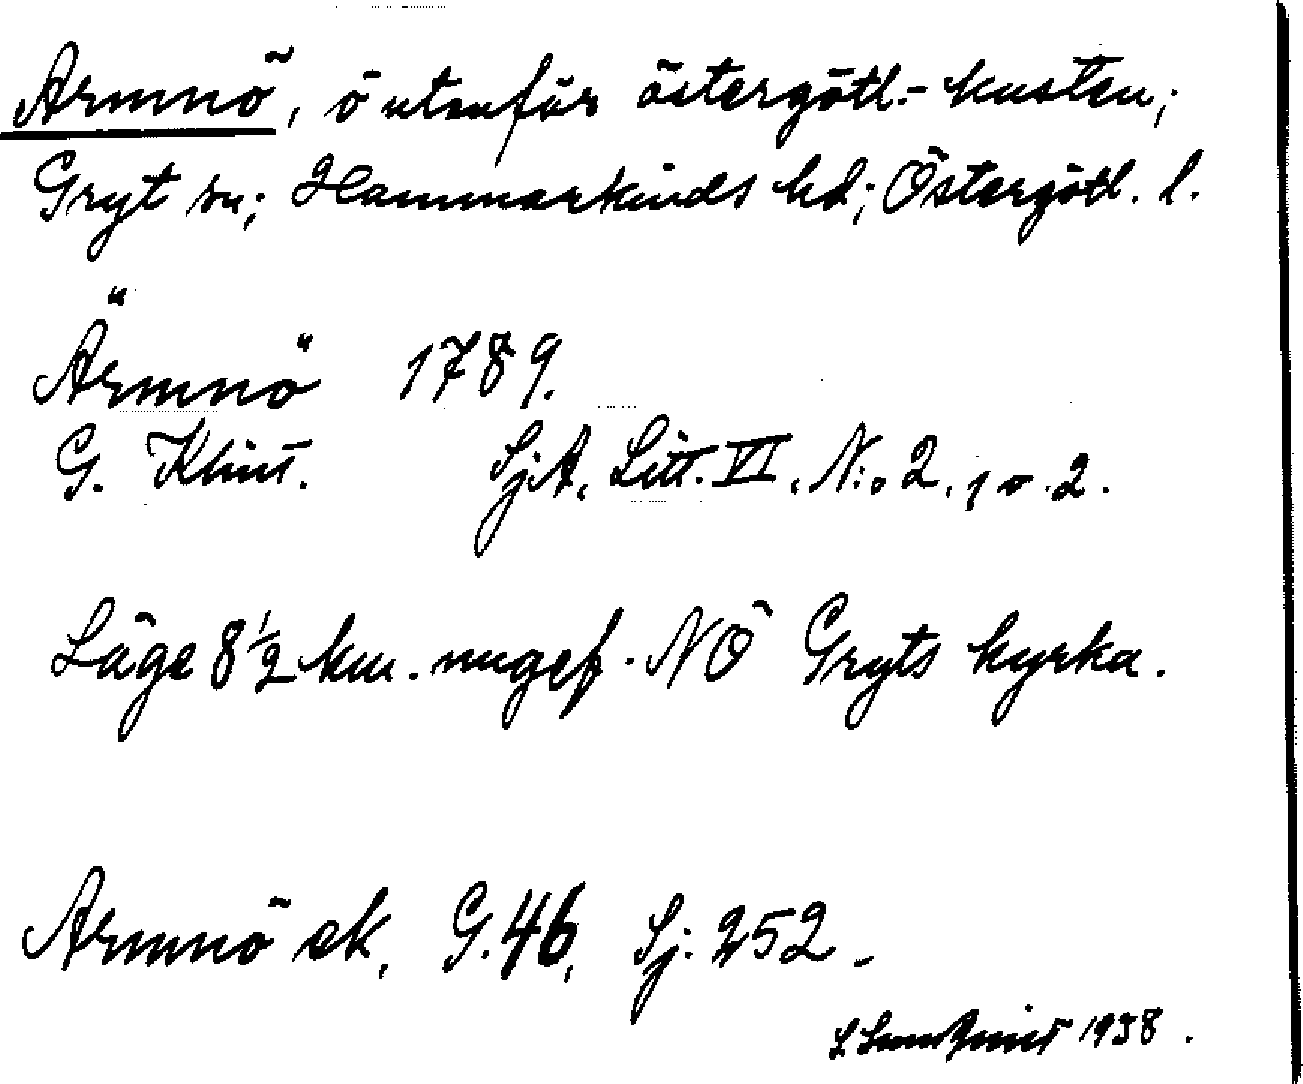 Armnö, ö utanför östergötl.-kusten;
Gryt sn; Hammarkinds hd; Östergötl. l.
Ärmnö 1789.
G. Klint. SjA, Litt. VI, N:o 2, 1 o. 2.
Läge 8 1/2 km. ungef. NÖ Gryts kyrka.
Armnö ek. G. 46, Sj. 252.
1938.